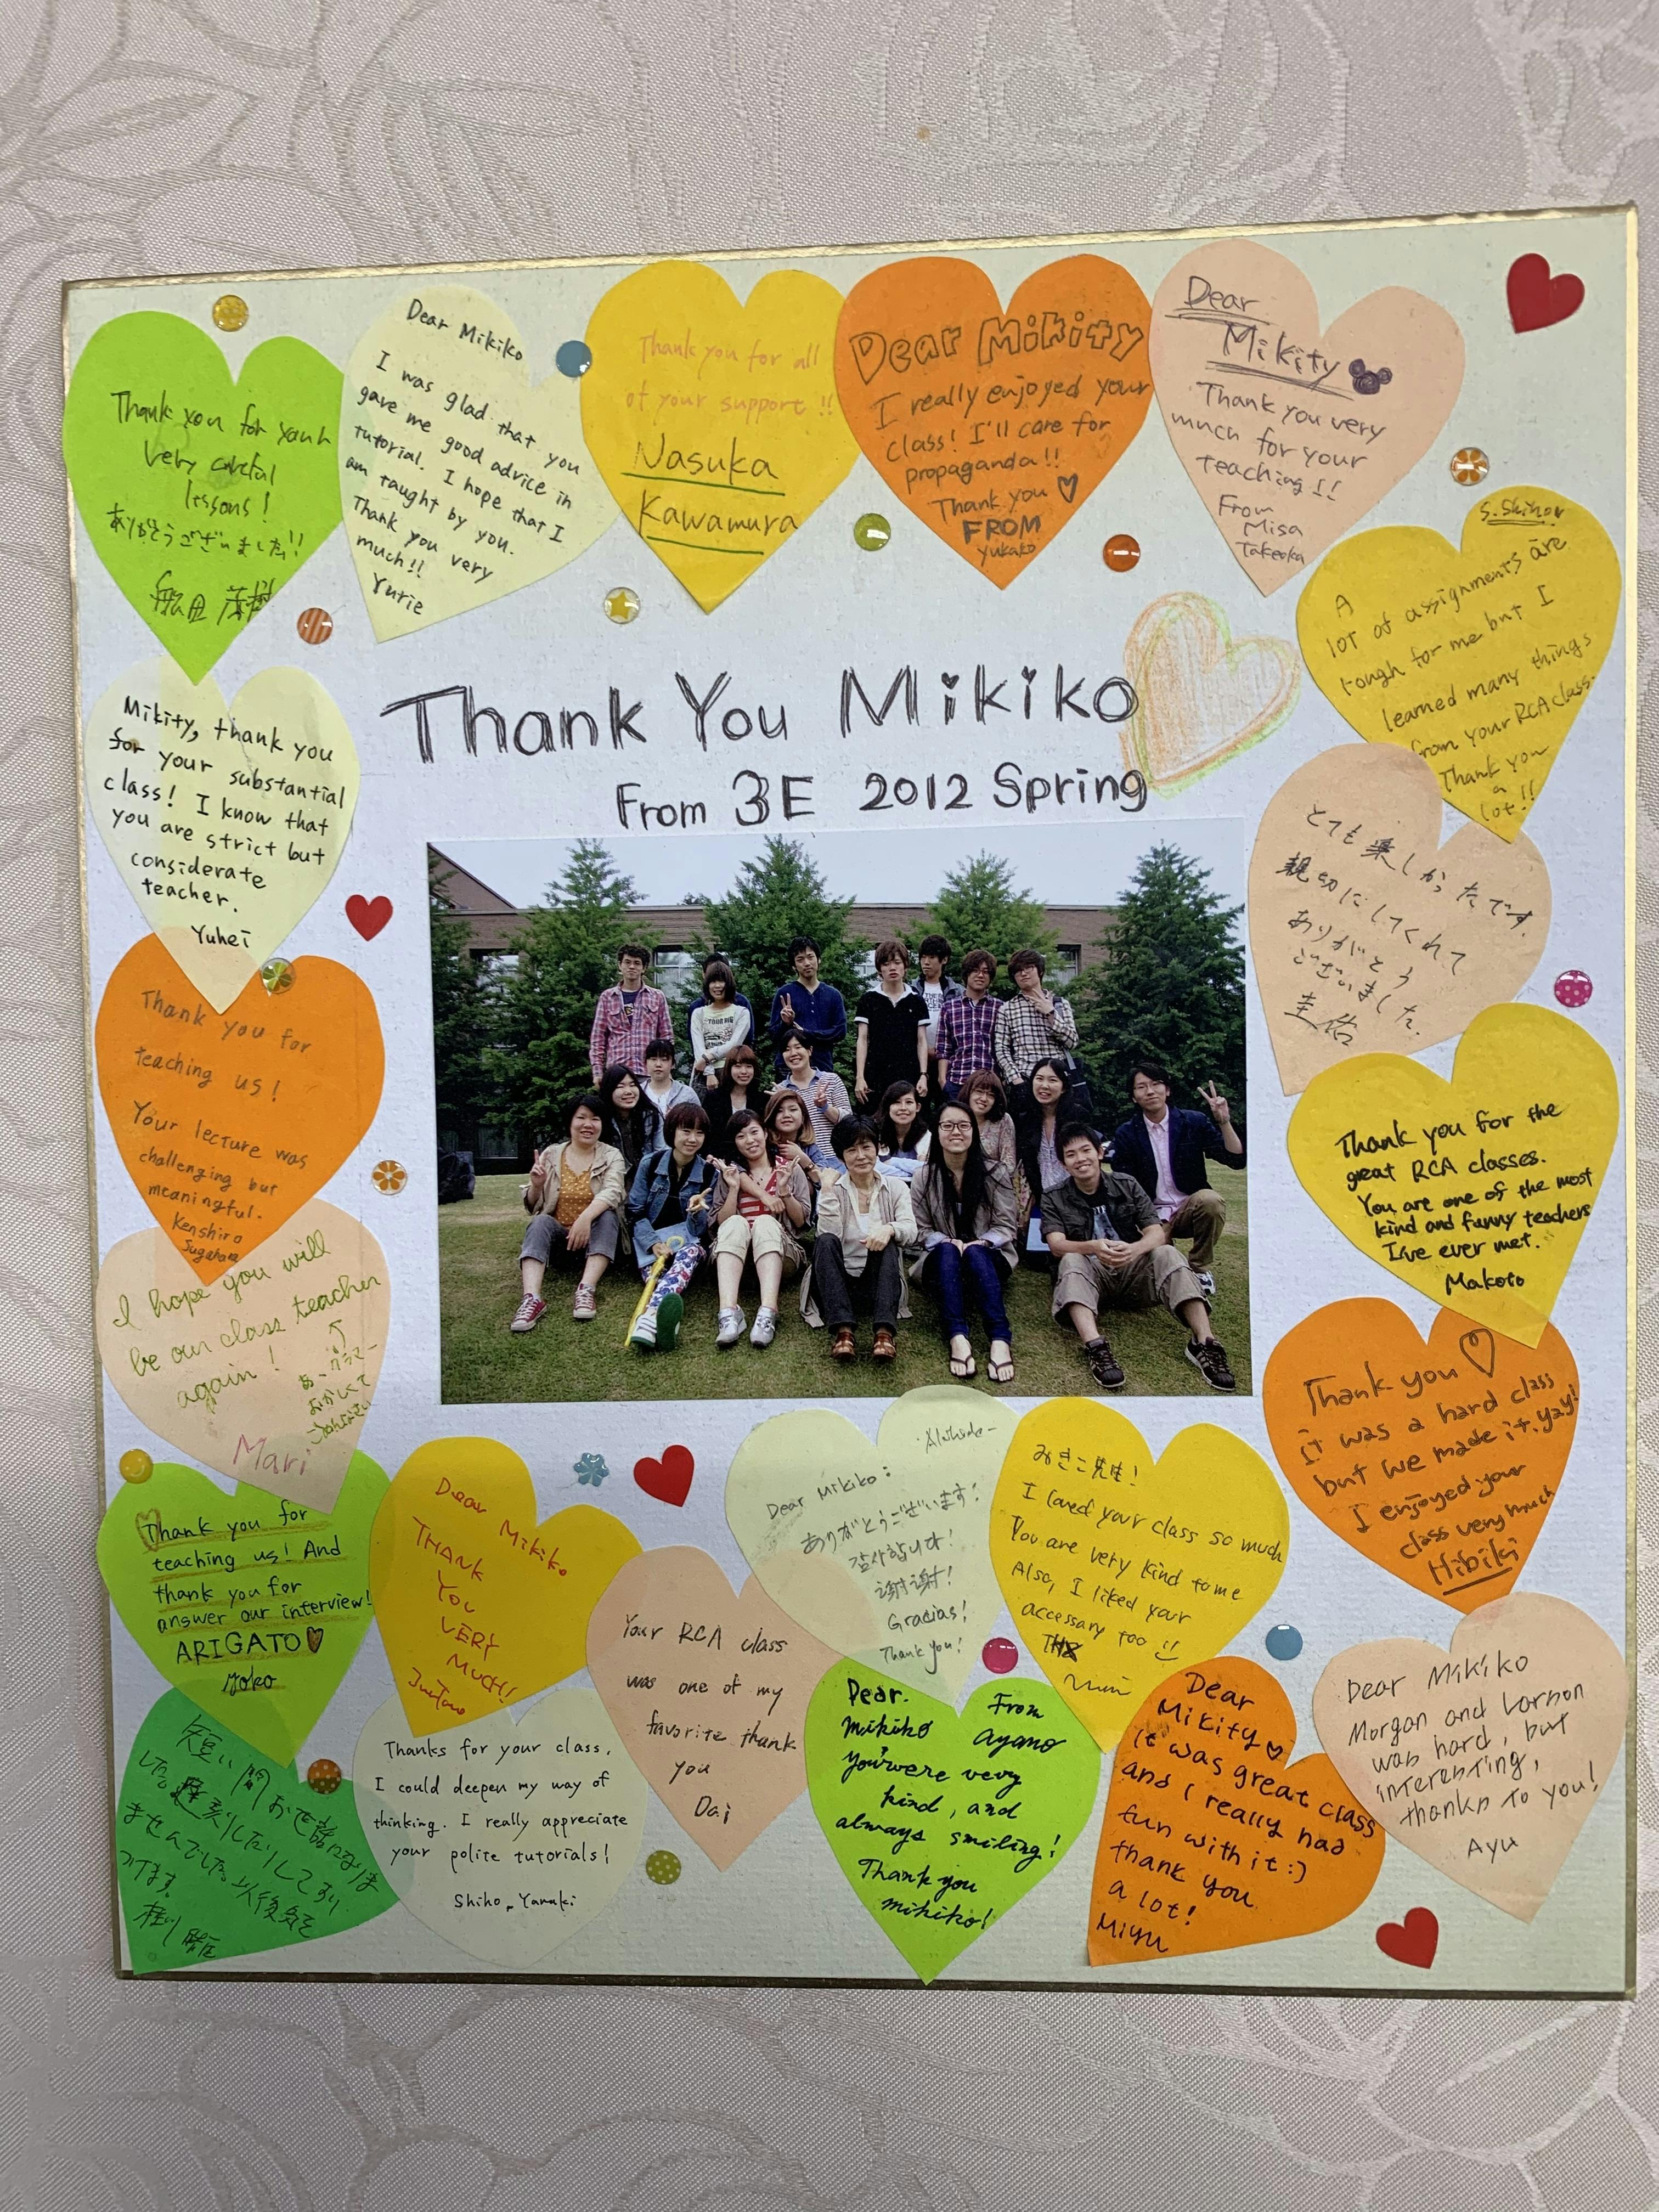 Thank you for your
very careful
lissons!
ありがとうございました!!
Dear Mikiko
I was glad that you
gave me good advice in
tutorial. I hope that I
am taught by you.
Thank you very
much!!
Yurie
Thank you for all
of your support!!
Nasuka
Kawamura
Dear Mikity
I really enjoyed your
class! I'll care for
propaganda!!
Thank you ♡
FROM
Yukako
Dear
Mikity
Thank you very
much for your
teaching!!
From
Misa
Takeoka
A
lot of assignments are
tough for me but I
learned many things
from your RCA class.
Thank you
a
lot!!
Thank You Mikiko
From 3E 2012 Spring
Mikity, thank you
for your substantial
class! I know that
you are strict but
considerate
teacher.
Yuhei
とても楽しかったです。
親切にしてくれて
ありがとう
ございました。
圭佑
Thank you for
teaching us!
Your lecture was
challenging but
meaningful.
Kenshiro
Sugahara
Thank you for the
great RCA classes.
You are one of the most
kind and funny teachers
I've ever met.
Makoto
I hope you will
be our class teacher
again!
Mari
Thank you ♡
it was a hard class
but we made it. yay!
I enjoyed your
class very much
Hibiki
Thank you for
teaching us! And
thank you for
answer our interview!
ARIGATO♡
Dear Mikiko
THANK
YOU
VERY
MUCH!
Dear Mikiko:
ありがとうございます!
감사합니다!
谢谢!
Gracias!
Thank you!
みきこ先生!
I loved your class so much
You are very kind to me
Also, I liked your
accessary too!!
Your RCA class
was one of my
favorite thank
you
Dai
短い間お世話になりま
した。遅刻したりしてすい
ませんでした。以後気を
つけます。
Thanks for your class.
I could deepen my way of
thinking. I really appreciate
your polite tutorials!
Shiho. Yamaki
Dear. From
Mikiko Ayano
You were very
kind, and
always smiling!
Thank you
mikiko!
Dear
Mikity♡
It was great class
and I really had
fun with it:)
thank you
a lot!
Miyu
Dear Mikiko
Morgan and Larson
was hard, but
interesting,
thanks to you!
Ayu